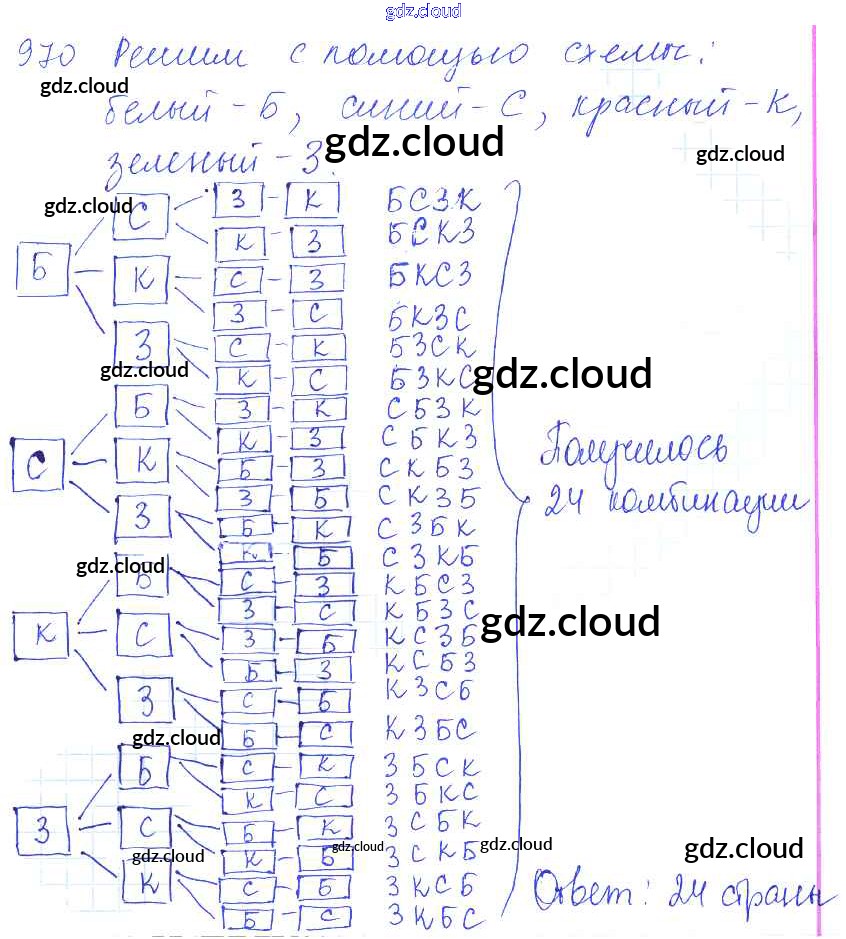 gdz.cloud
970 Решим с помощью схемы:
gdz.cloud
белый - Б, синий - С, красный - К,
gdz.cloud
зеленый - З.
gdz.cloud
gdz.cloud
Б
С З - К БСЗК
К З БСКЗ
К С - З БКСЗ
З - С БКЗС
З С - К БЗСК
gdz.cloud
К - С БЗКС
gdz.cloud
С
Б З - К СБЗК
К - З СБКЗ
К Б - З СКБЗ
З - Б СКЗБ
З Б - К СЗБК
К - Б СЗКБ
Получилось
24 комбинации
gdz.cloud
К
Б С - З КБСЗ
З - С КБЗС
С З - Б КСЗБ
gdz.cloud
Б - З КСБЗ
З С - Б КЗСБ
Б - С КЗБС
gdz.cloud
З
Б С - К ЗБСК
К - С ЗБКС
С Б - К ЗСБК
К - Б ЗСКБ
gdz.cloud
gdz.cloud
gdz.cloud
gdz.cloud
К С - Б ЗКСБ
Б - С ЗКБС
Ответ: 24 страны